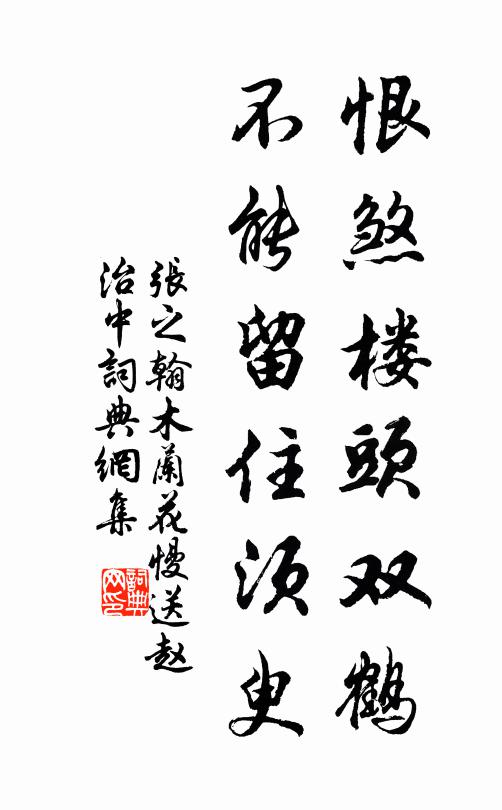 恨煞楼頭双鶴
不能留住须叟
張之翰木蘭花慢送赵
治中詞典網集
詞典
网